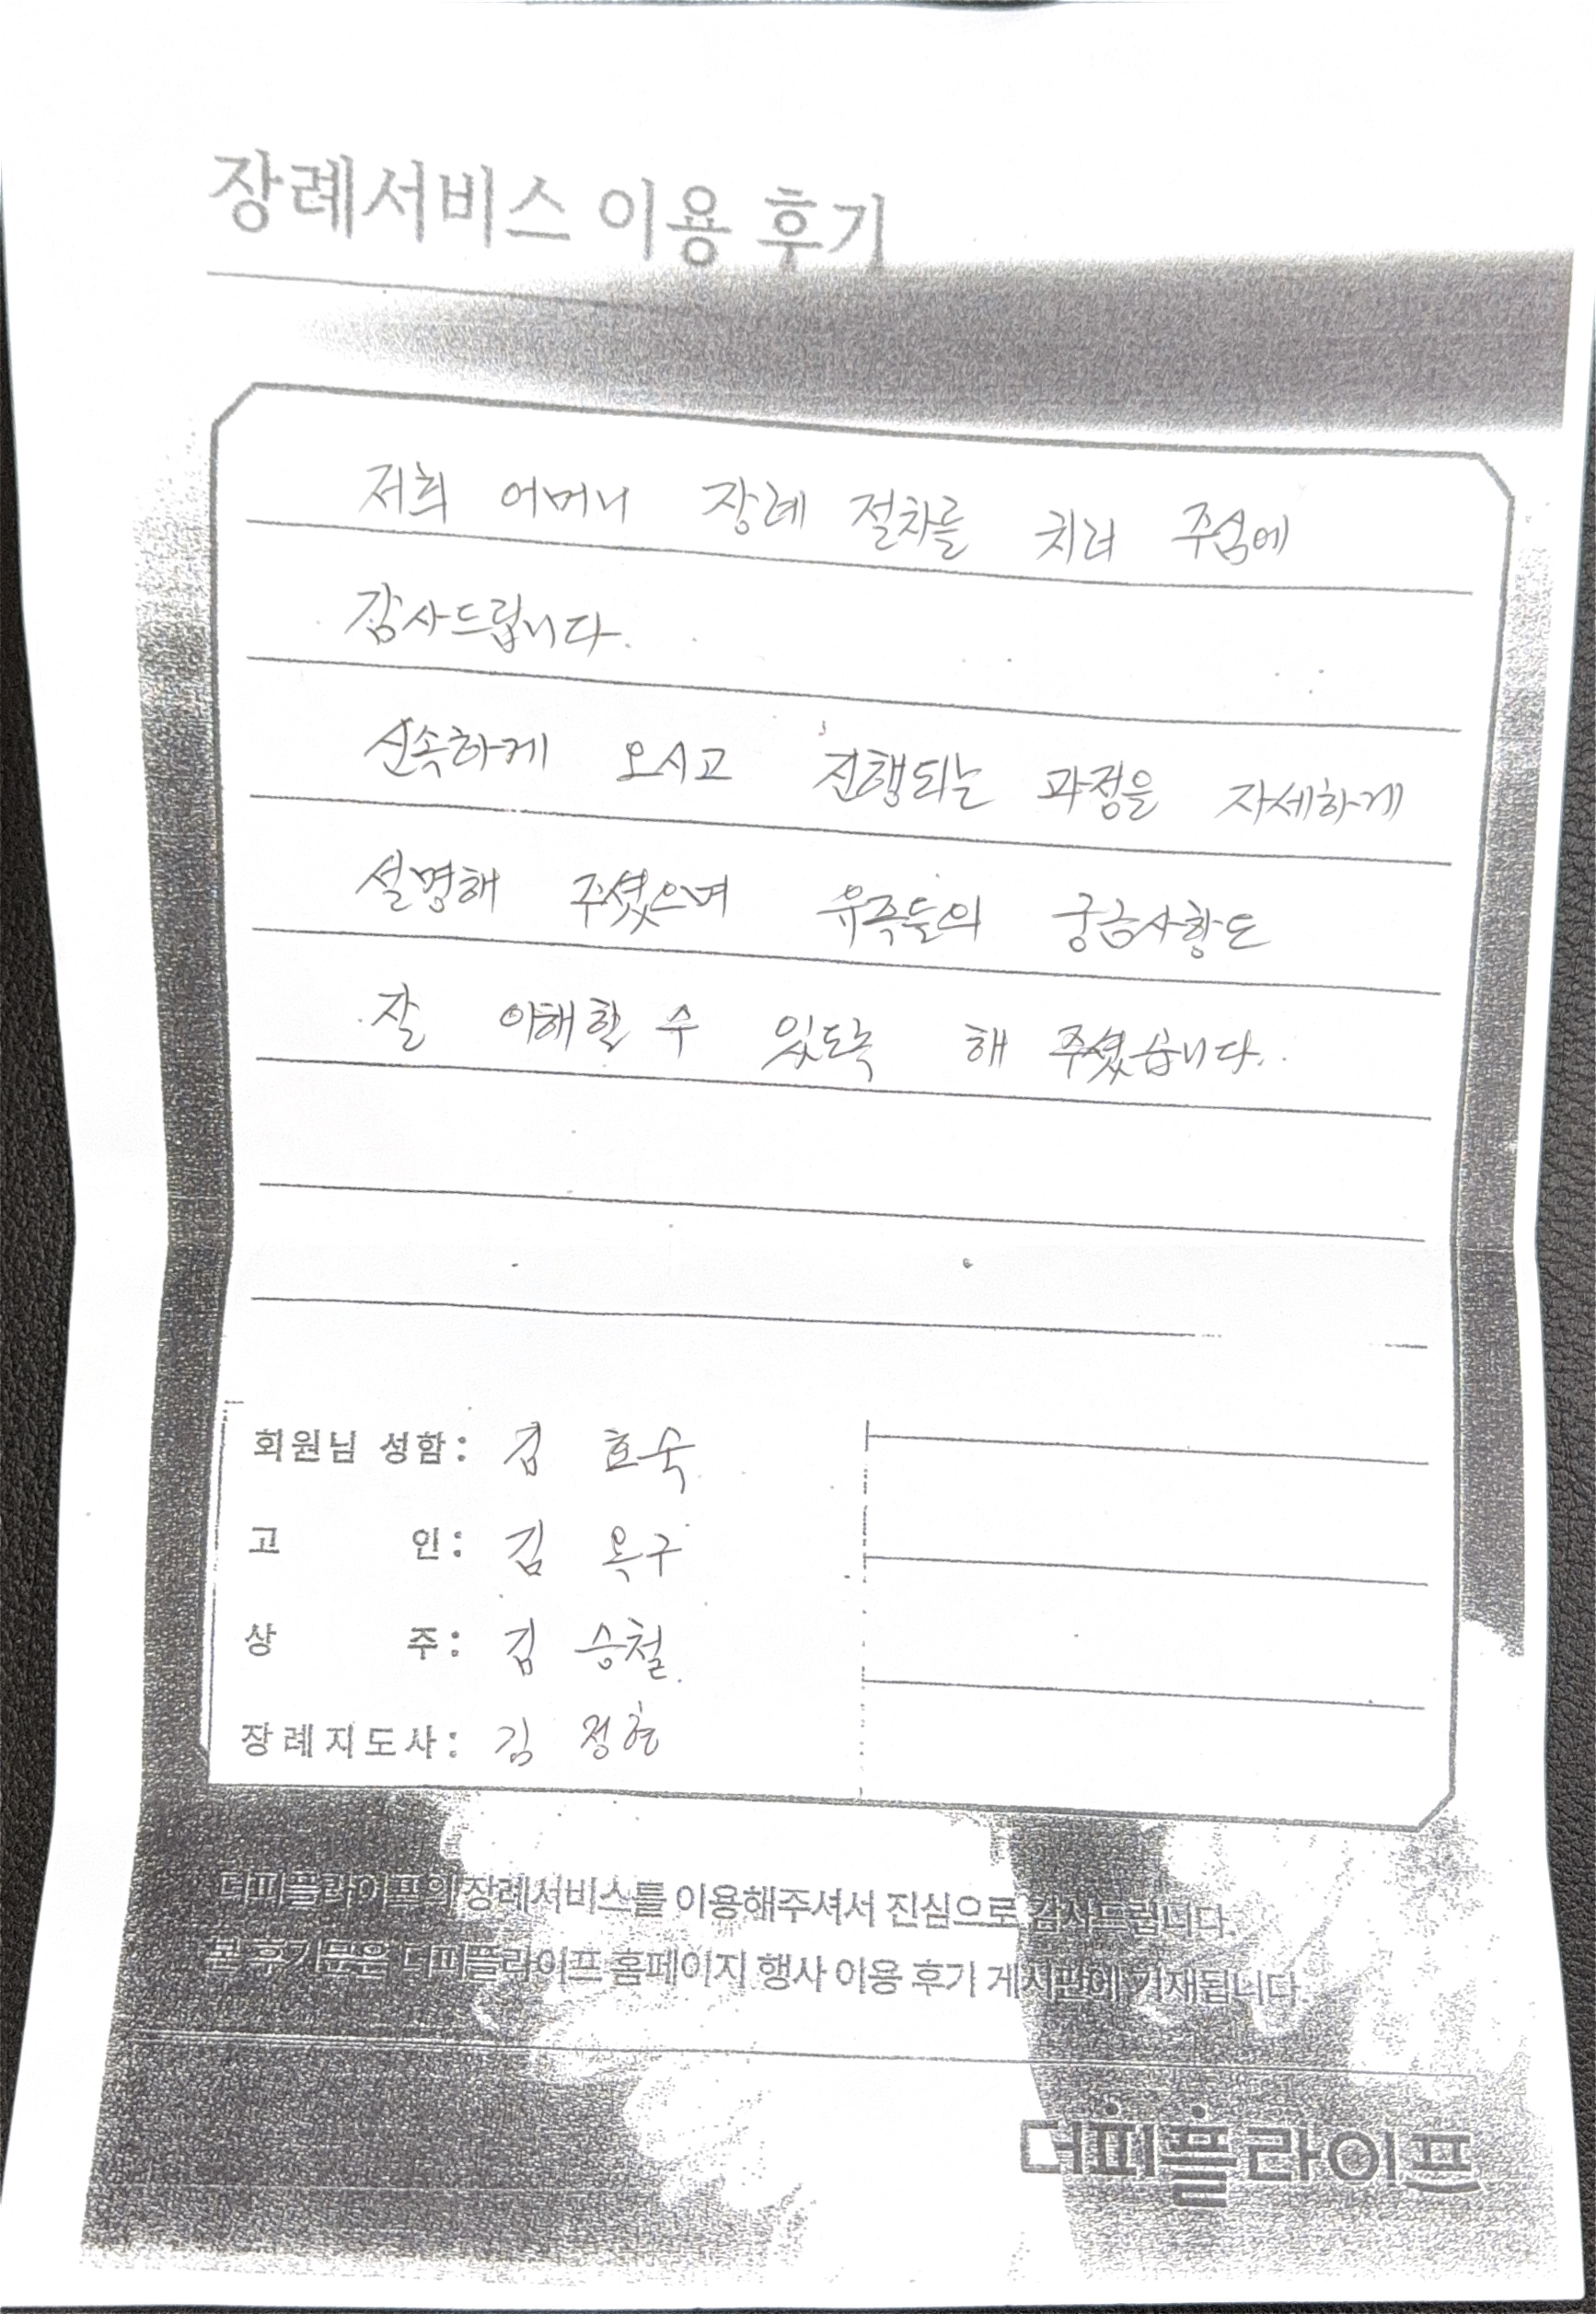 장례서비스 이용 후기
저희 어머니 장례 절차를 치러 주심에
감사드립니다.
신속하게 오시고 진행되는 과정을 자세하게
설명해 주셨으며 유족들의 궁금사항도
잘 이해할 수 있도록 해 주셨습니다.
회원님 성함: 김 효숙
고 인: 김 옥구
상 주: 김 승철
장례지도사: 김 정현
더피플라이프의 장례서비스를 이용해주셔서 진심으로 감사드립니다.
본 후기문은 더피플라이프 홈페이지 행사 이용 후기 게시판에 기재됩니다.
더피플라이프